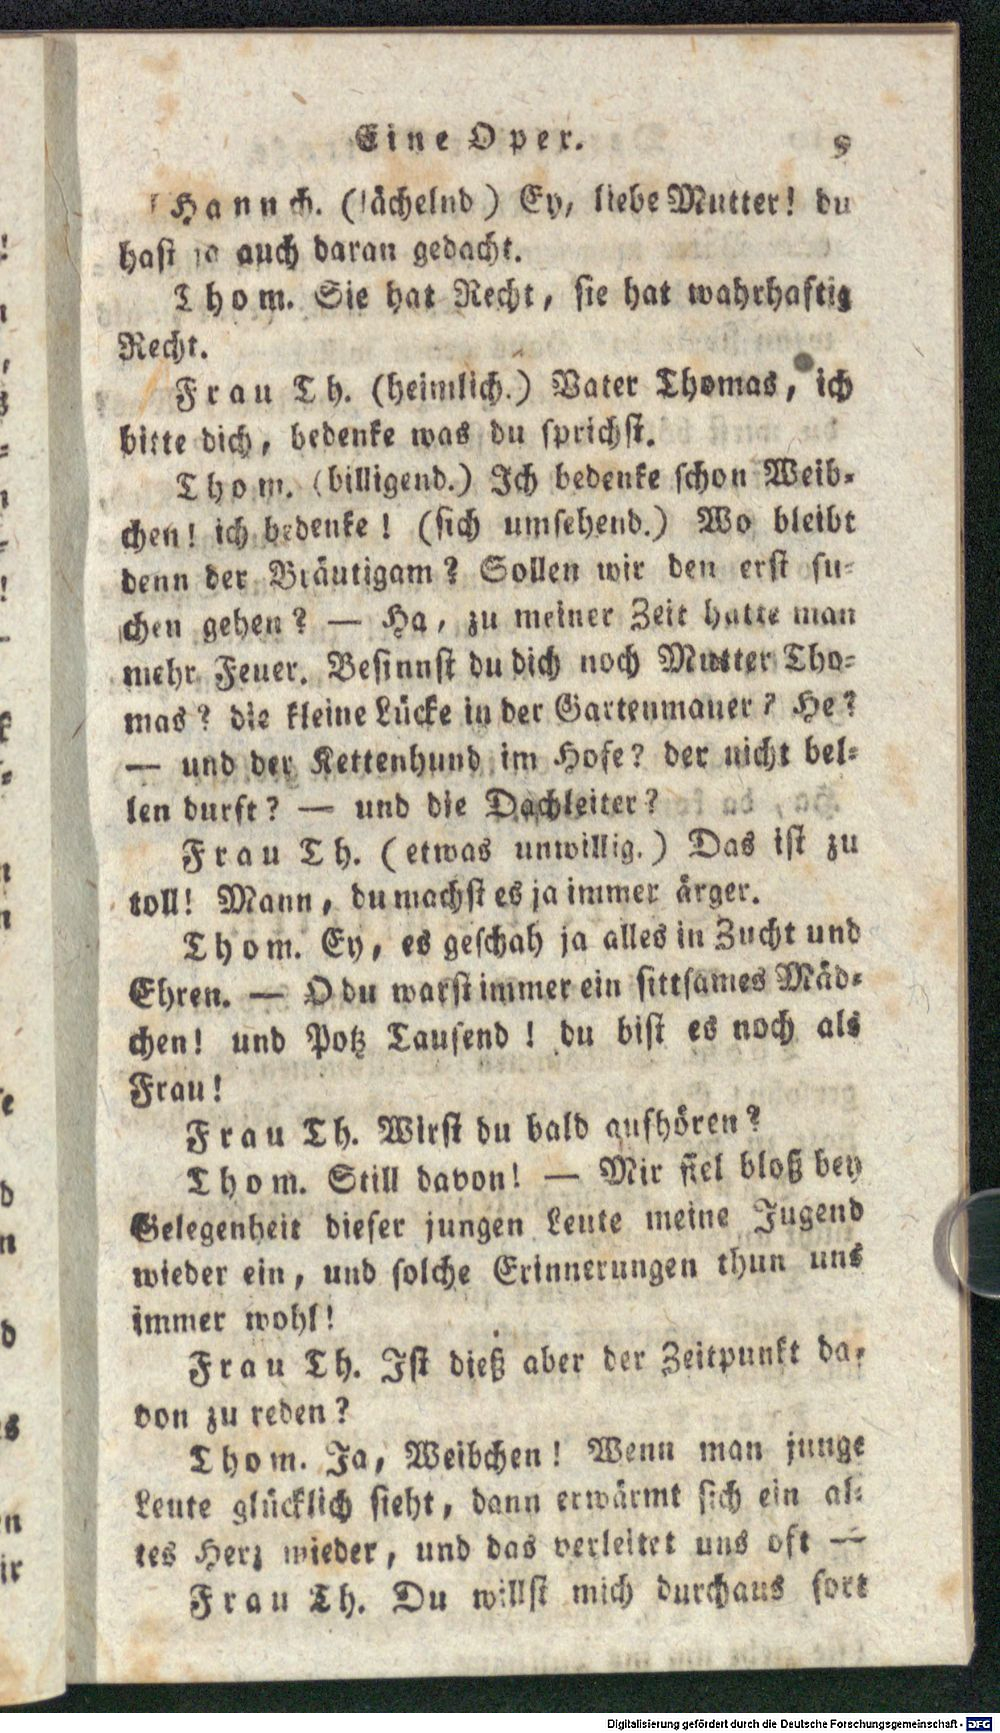 Eine Oper. 9
Hannch. (lächelnd) Ey, liebe Mutter! du
hast ja auch daran gedacht.
Thom. Sie hat Recht, sie hat wahrhaftig
Recht.
Frau Th. (heimlich.) Vater Thomas, ich
bitte dich, bedenke was du sprichst.
Thom. (billigend.) Ich bedenke schon Weib-
chen! ich bedenke! (sich umsehend.) Wo bleibt
denn der Bräutigam? Sollen wir den erst su-
chen gehen? — Ha, zu meiner Zeit hatte man
mehr Feuer. Besinnst du dich noch Mutter Tho-
mas? die kleine Lücke in der Gartenmauer? He?
— und der Kettenhund im Hofe? der nicht bel-
len durft? — und die Dachleiter?
Frau Th. (etwas unwillig.) Das ist zu
toll! Mann, du machst es ja immer ärger.
Thom. Ey, es geschah ja alles in Zucht und
Ehren. — O du warst immer ein sittsames Mäd-
chen! und Potz Tausend! du bist es noch als
Frau!
Frau Th. Wirst du bald aufhören?
Thom. Still davon! — Mir fiel bloß bey
Gelegenheit dieser jungen Leute meine Jugend
wieder ein, und solche Erinnerungen thun uns
immer wohl!
Frau Th. Ist dieß aber der Zeitpunkt da-
von zu reden?
Thom. Ja, Weibchen! Wenn man junge
Leute glücklich sieht, dann erwärmt sich ein al-
tes Herz wieder, und das verleitet uns oft —
Frau Th. Du willst mich durchaus fort
Digitalisierung gefördert durch die Deutsche Forschungsgemeinschaft - DFG